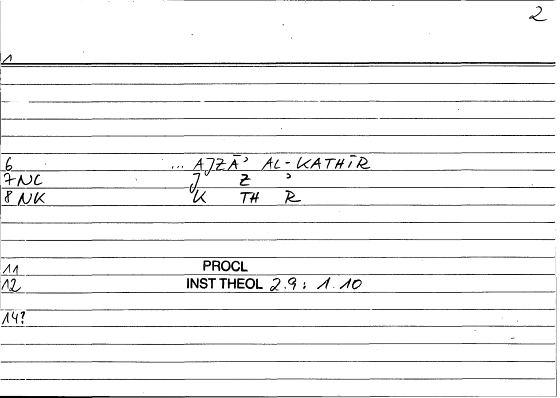 2
1
6 ... AJZĀʾ AL-KATHĪR
7 NC J Z ʾ
8 NK K TH R
11 PROCL
12 INST THEOL 2.9; 1.10
14?